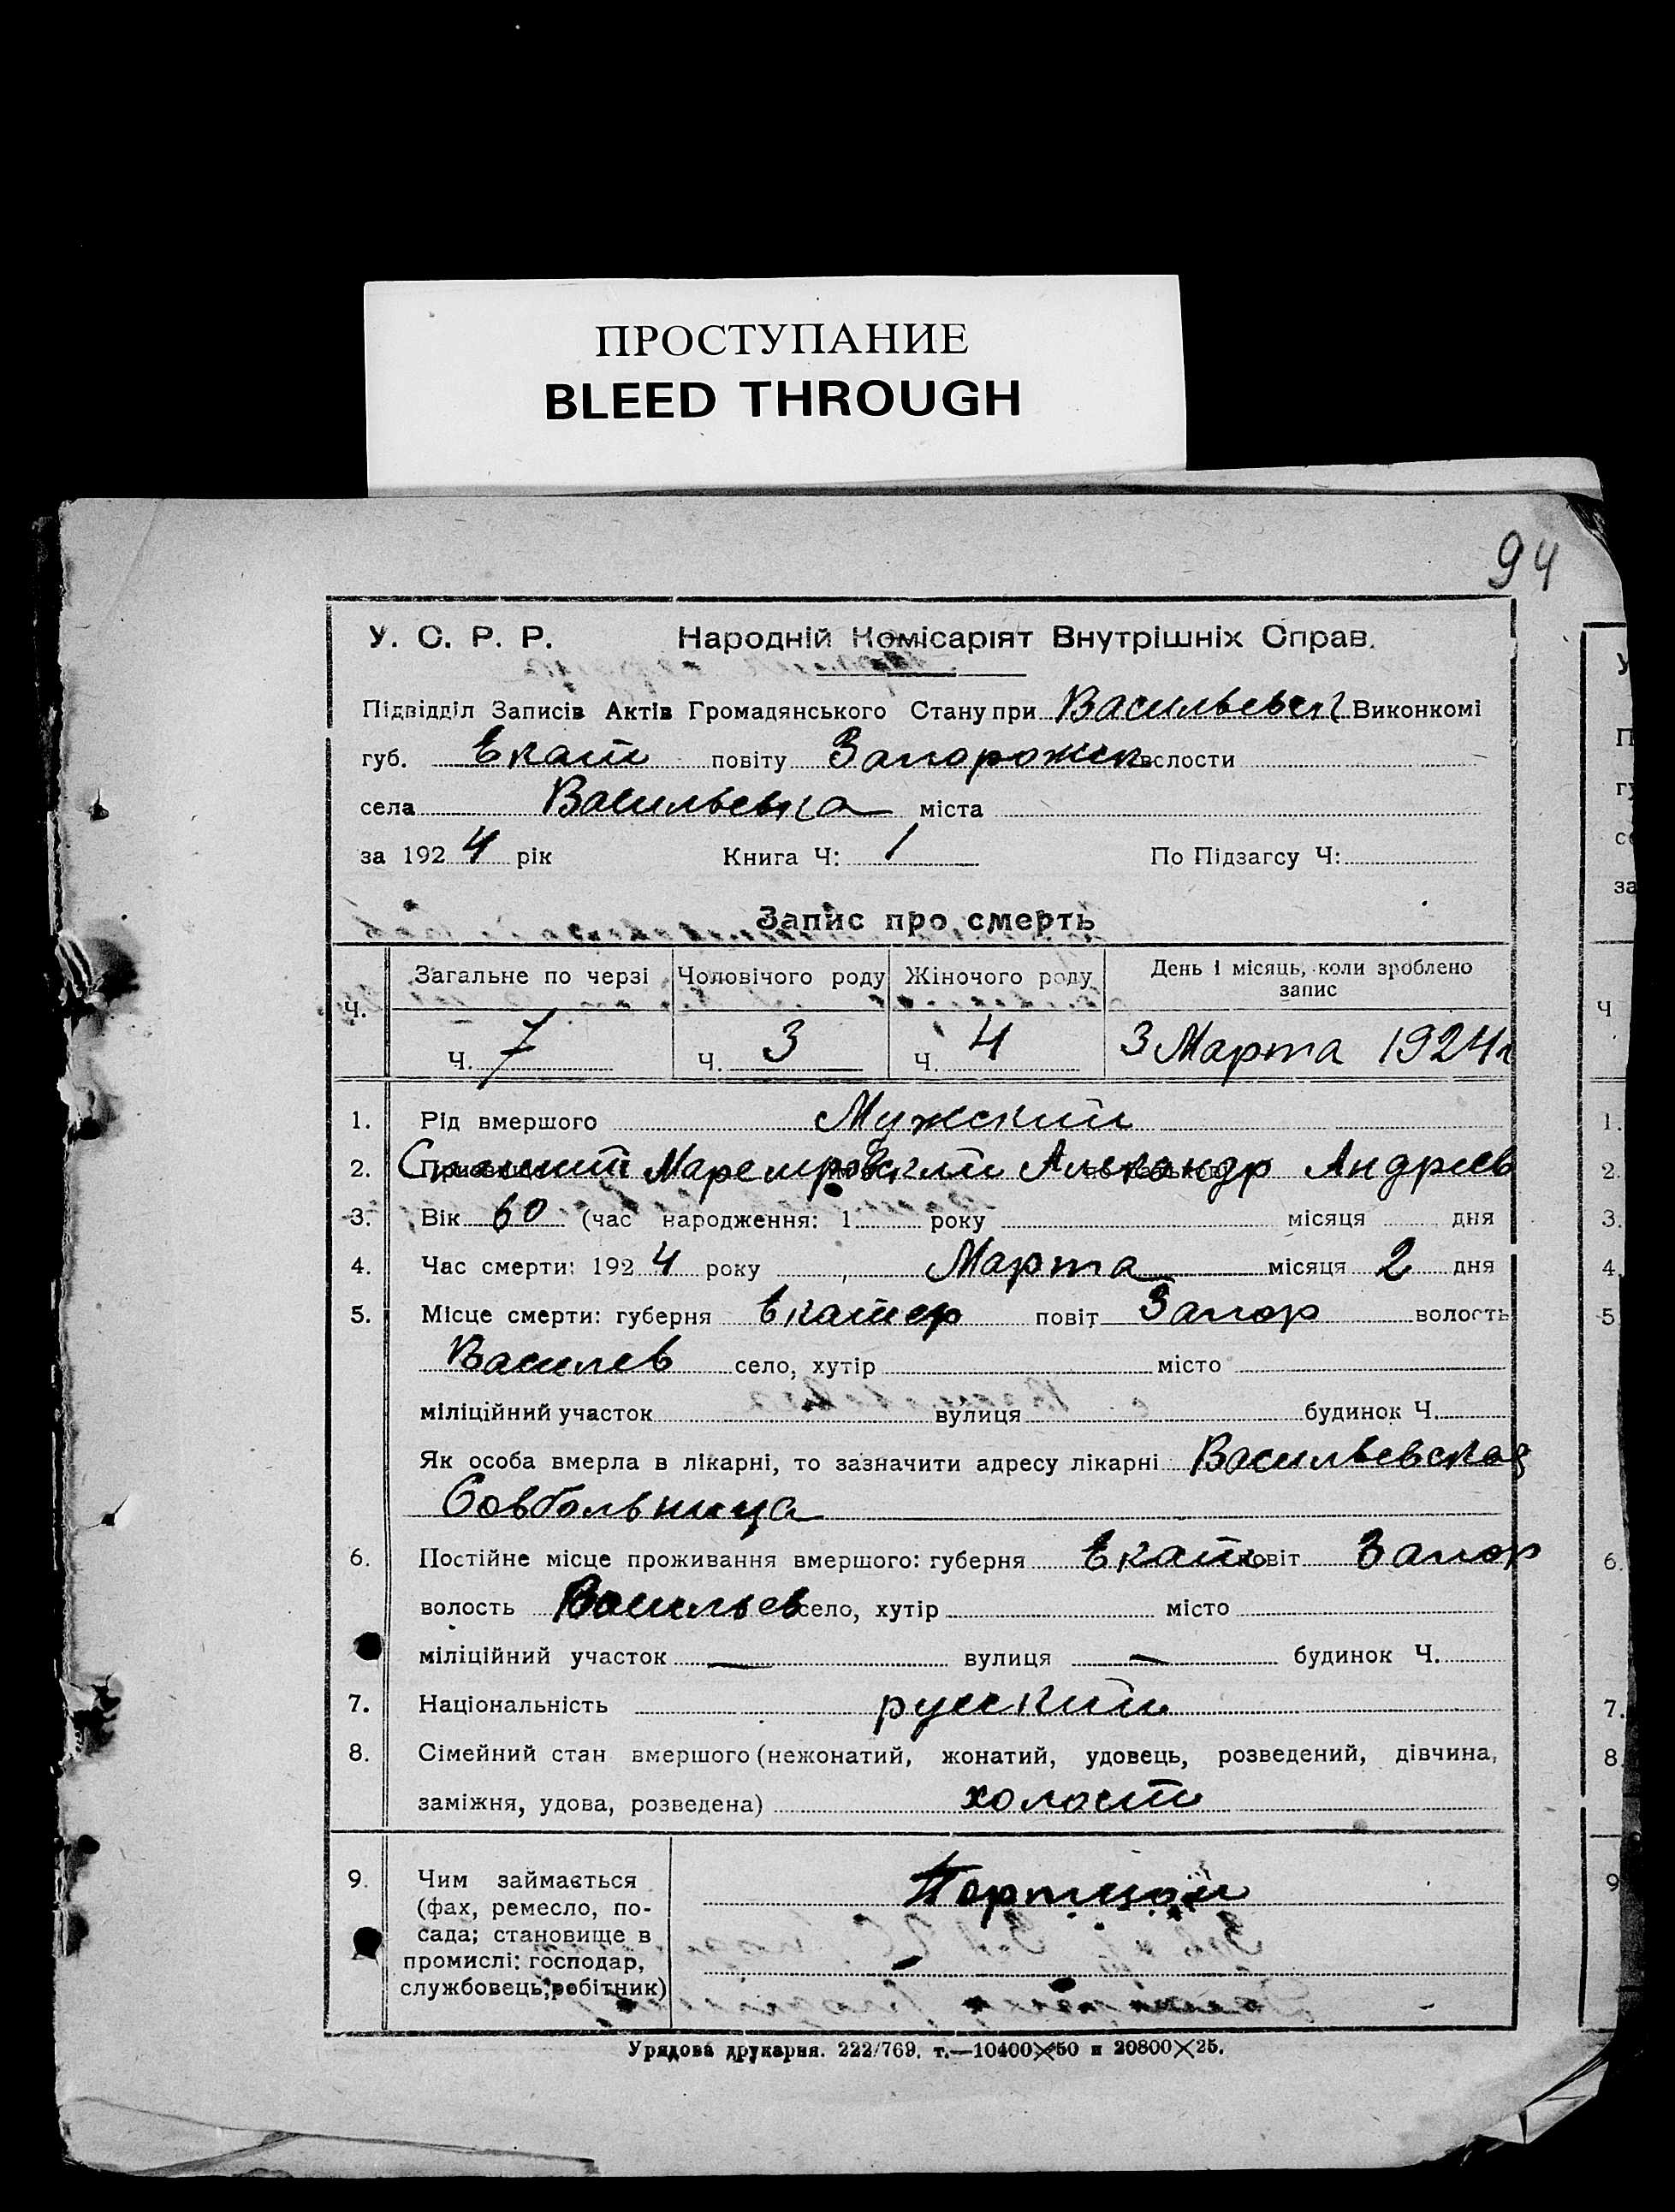 ПРОСТУПАНИЕ
BLEED THROUGH
94
У. С. Р. Р. Народній Комісаріят Внутрішніх Справ.
Підвідділ Записів Актів Громадянського Стану при Васильевск Виконкомі
губ. Екат повіту Запорожск волости
села Васильевка міста
за 1924 рік Книга Ч: 1 По Підзагсу Ч:
Запис про смерть
Ч. Загальне по черзі Чоловічого роду Жіночого роду День і місяць, коли зроблено
запис
Ч. 7 Ч. 3 Ч. 4 3 Марта 1924 г
1. Рід вмершого Мужский
2. Александр Андреев
3. Вік 60 (час народження: 1 року місяця дня
4. Час смерти: 1924 року Марта місяця 2 дня
5. Місце смерти: губерня Екатер повіт Запор волость
Василев село, хутір місто
міліційний участок вулиця будинок Ч.
Як особа вмерла в лікарні, то зазначити адресу лікарні Васильевская
Совбольница
6. Постійне місце проживання вмершого: губерня Екат повіт Запор
волость Васильев село, хутір місто
міліційний участок — вулиця — будинок Ч.
7. Національність русский
8. Сімейний стан вмершого (нежонатий, жонатий, удовець, розведений, дівчина,
заміжня, удова, розведена) холост
9. Чим займається
(фах, ремесло, по-
сада; становище в
промислі: господар,
службовець, робітник)
Урядова друкарня. 222/769. т.—10400×50 и 20800×25.